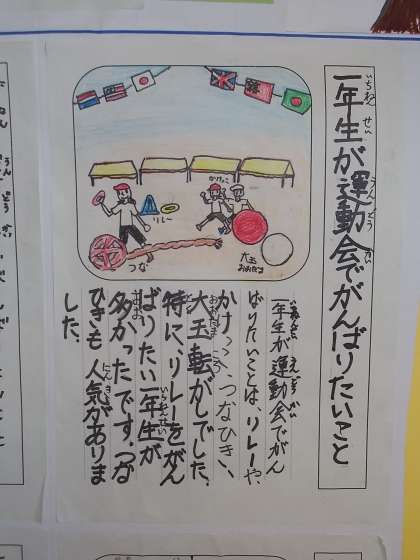 一年生が運動会でがんばりたいこと
一年生が運動会でがん
ばりたいことは、リレーや、
かけっこ、つなひき、
大玉転がしでした。
特に、リレーをがん
ばりたい一年生が
多かったです。つな
ひきも人気がありま
した。
かけっこ
リレー
つな
大玉
おおだま